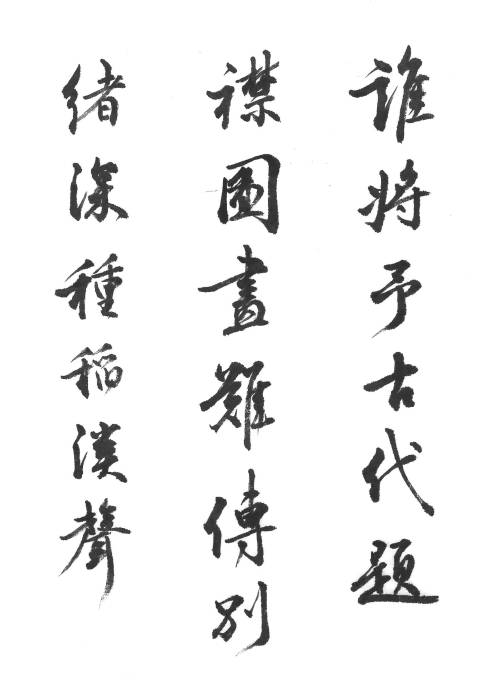 誰將予古代題
襟圖畫難傳別
緒深種稻漢聲